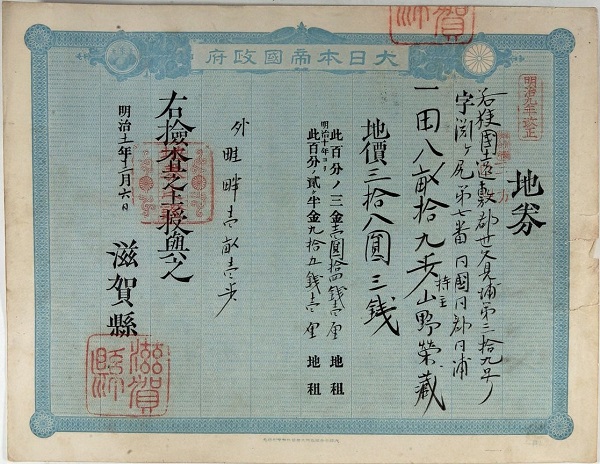 大日本帝國政府
明治九年改正
地券
若狭國遠敷郡世久見浦第三拾九号ノ
字渕ヶ尻第七番 同國同郡同浦
一田八畝拾九歩 持主 山野榮藏
地價三拾八圓三銭
此百分ノ三金壱圓拾四銭壱厘 地租
明治十年ヨリ
此百分ノ貳ヶ半金九拾五銭壱厘 地租
外 畦畔壱畝壱歩
右検査之上授與之
明治十一年十二月六日
滋賀縣
滋賀縣